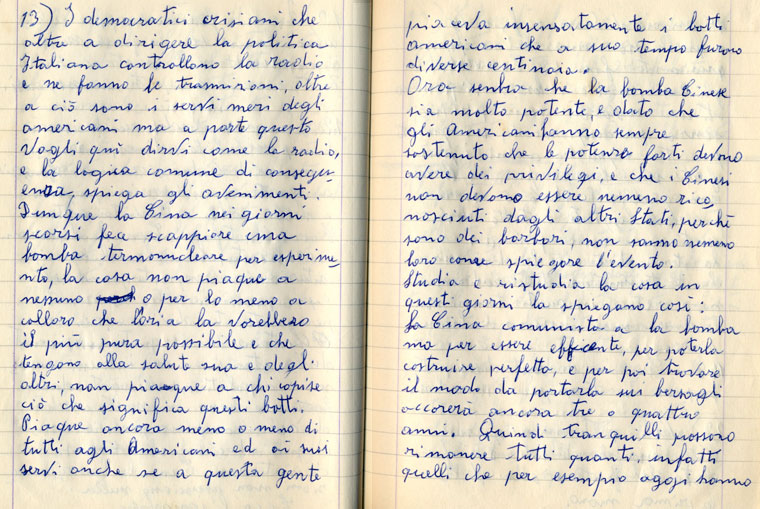 13) I democratici crisiani che
oltre a dirigere la politica
Italiana controllano la radio
e ne fanno le trasmizioni, oltre
a ciò sono i servi meri degli
americani ma a parte questo
Vogli qui dirvi come la radio,
e la logua comune di conseguen
enza, spiega gli avenimenti.
Dunque la Cina nei giorni
scorsi fece scappiore una
bomba termonucleare per esperime
nto, la cosa non piaque a
nessuno o per lo meno a
colloro che l'aria la vorebbero
il più pura possibile e che
tengono alla salute sua e degli
altri, non piaque a chi capise
ciò che significa questi botti.
Piaque ancora meno o meno di
tutti agli Americani ed ai suoi
servi anche se a questa gente
piaceva insensatamente i botti
americani che a suo tempo furono
diverse centinaia.
Ora senbra che la bomba Cinese
sia molto potente, e dato che
gli Americani hanno sempre
sostenuto che le potenze forti devono
avere dei privilegi, e che i Cinesi
non devono essere nemeno rico
nosciuti dagli altri Stati, perchè
sono dei barbari, non sanno nemeno
loro come spiegare l'evento.
Studia e ristudia la cosa in
questi giorni la spiegano così:
La Cina comunista a la bomba
ma per essere efficente, per poterla
costruire perfetta, e per poi trovare
il modo da portarla sui bersagli
accorerà ancora tre o quattro
anni. Quindi tranquilli possono
rimanere tutti quanti, infatti
quelli che per esempio aggi hanno